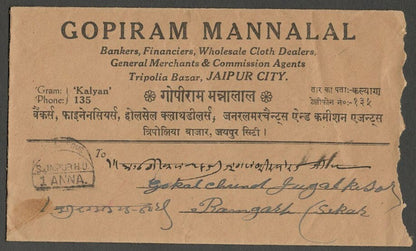 GOPIRAM MANNALAL
Bankers, Financiers, Wholesale Cloth Dealers,
General Merchants & Commission Agents
Tripolia Bazar, JAIPUR CITY.
'Gram: 'Kalyan'
Phone: 135
तार का पता:- कल्याण
टेलीफोन नं०:-१३५
❋ गोपीराम मन्नालाल ❋
बैंकर्स, फाइनेनसियर्स, होलसेल क्लाथडीलर्स, जनरलमरचैन्ट्स ऐन्ड कमीशन एजन्टस
त्रिपोलिया बाजार, जयपुर सिटी।
To
JAIPUR H.O.
1 ANNA.
Gokalchand Jugalkisor
Ramgarh (Sikar